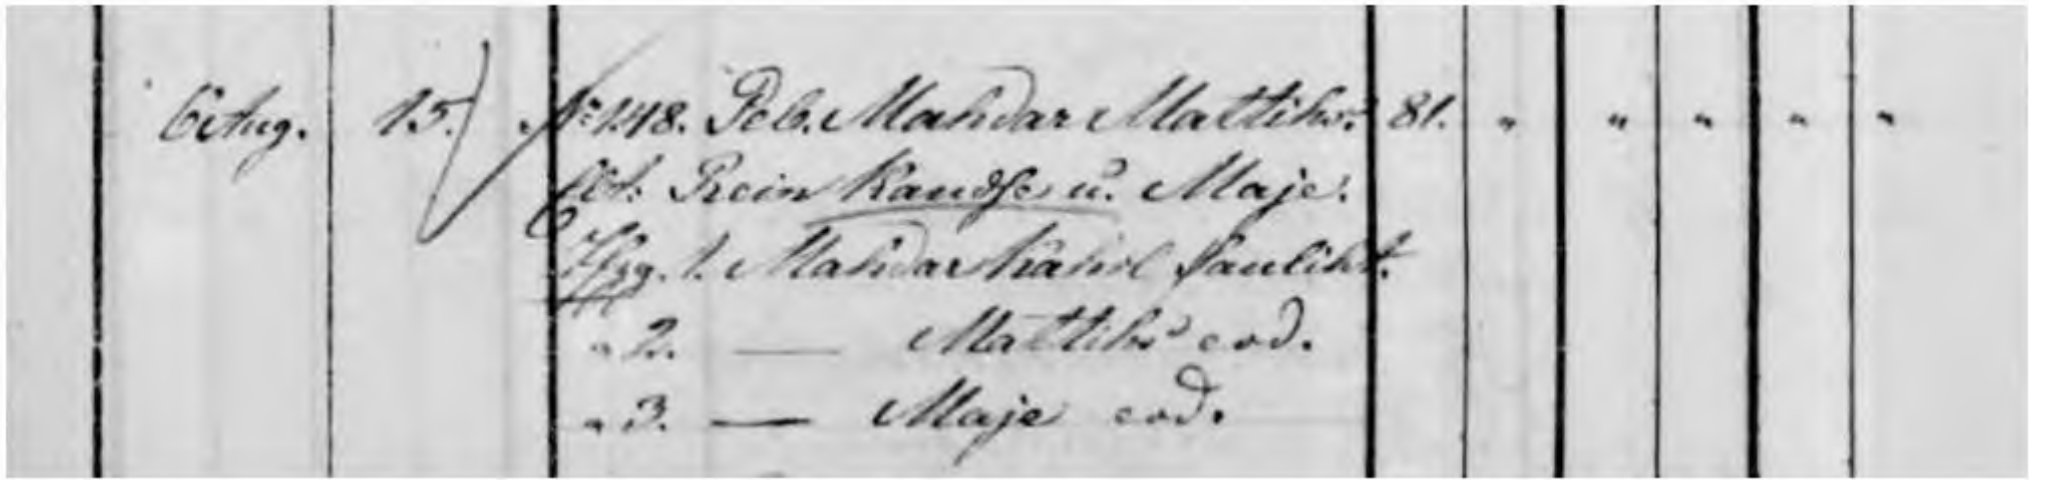 6 Aug. 15. № 148. Peb. Mahdar Mattihs. 81. " " " " "
Elt. Rein Kandse u. Maje.
1. Mahdar Kahrl Paulihst.
" 2. — Mattihs eod.
" 3. — Maje eod.